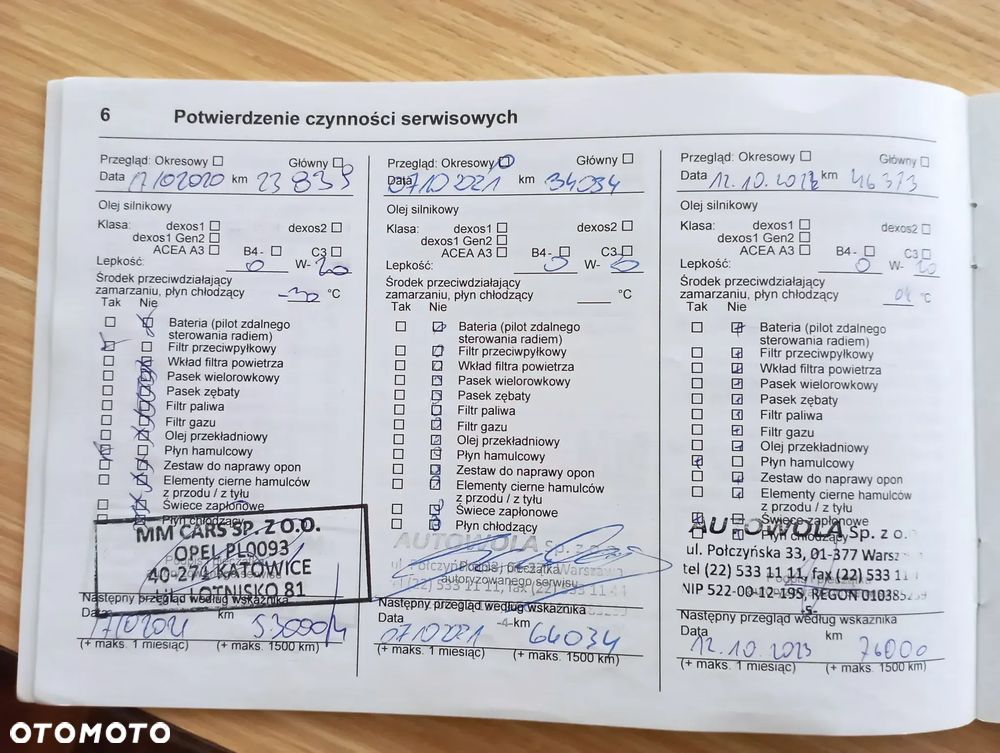 6 Potwierdzenie czynności serwisowych
Przegląd: Okresowy Główny
Data 17102020 km 23 839
Olej silnikowy
Klasa: dexos1 dexos2
dexos1 Gen2
ACEA A3 B4- C3
Lepkość: 0 W-20
Środek przeciwdziałający
zamarzaniu, płyn chłodzący -32 °C
Tak Nie
Bateria (pilot zdalnego
sterowania radiem)
Filtr przeciwpyłkowy
Wkład filtra powietrza
Pasek wielorowkowy
Pasek zębaty
Filtr paliwa
Filtr gazu
Olej przekładniowy
Płyn hamulcowy
Zestaw do naprawy opon
Elementy cierne hamulców
z przodu / z tyłu
Świece zapłonowe
Płyn chłodzący
MM CARS SP. Z O.O.
OPEL PL0093
40-271 KATOWICE
UL. LOTNISKO 81
Następny przegląd według wskaźnika
Data km
17102021 53000
(+ maks. 1 miesiąc) (+ maks. 1500 km)
Przegląd: Okresowy Główny
Data 07102021 km 34034
Olej silnikowy
Klasa: dexos1 dexos2
dexos1 Gen2
ACEA A3 B4- C3
Lepkość: 0 W-
Środek przeciwdziałający
zamarzaniu, płyn chłodzący °C
Tak Nie
Bateria (pilot zdalnego
sterowania radiem)
Filtr przeciwpyłkowy
Wkład filtra powietrza
Pasek wielorowkowy
Pasek zębaty
Filtr paliwa
Filtr gazu
Olej przekładniowy
Płyn hamulcowy
Zestaw do naprawy opon
Elementy cierne hamulców
z przodu / z tyłu
Świece zapłonowe
Płyn chłodzący
AUTOWOLA Sp. z o.o.
Podpis i pieczątka
autoryzowanego serwisu
Następny przegląd według wskaźnika
Data -4- km
07102021 64034
(+ maks. 1 miesiąc) (+ maks. 1500 km)
Przegląd: Okresowy Główny
Data 12.10.2022 km 46373
Olej silnikowy
Klasa: dexos1 dexos2
dexos1 Gen2
ACEA A3 B4- C3
Lepkość: 0 W- 20
Środek przeciwdziałający
zamarzaniu, płyn chłodzący ok °C
Tak Nie
Bateria (pilot zdalnego
sterowania radiem)
Filtr przeciwpyłkowy
Wkład filtra powietrza
Pasek wielorowkowy
Pasek zębaty
Filtr paliwa
Filtr gazu
Olej przekładniowy
Płyn hamulcowy
Zestaw do naprawy opon
Elementy cierne hamulców
z przodu / z tyłu
Świece zapłonowe
Płyn chłodzący
AUTOWOLA Sp. z o.o.
ul. Połczyńska 33, 01-377 Warsz
tel (22) 533 11 11, fax (22) 533 11
NIP 522-00-12-195, REGON 010385259
-5-
Następny przegląd według wskaźnika
Data km
12.10.2023 76000
(+ maks. 1 miesiąc) (+ maks. 1500 km)
OTOMOTO